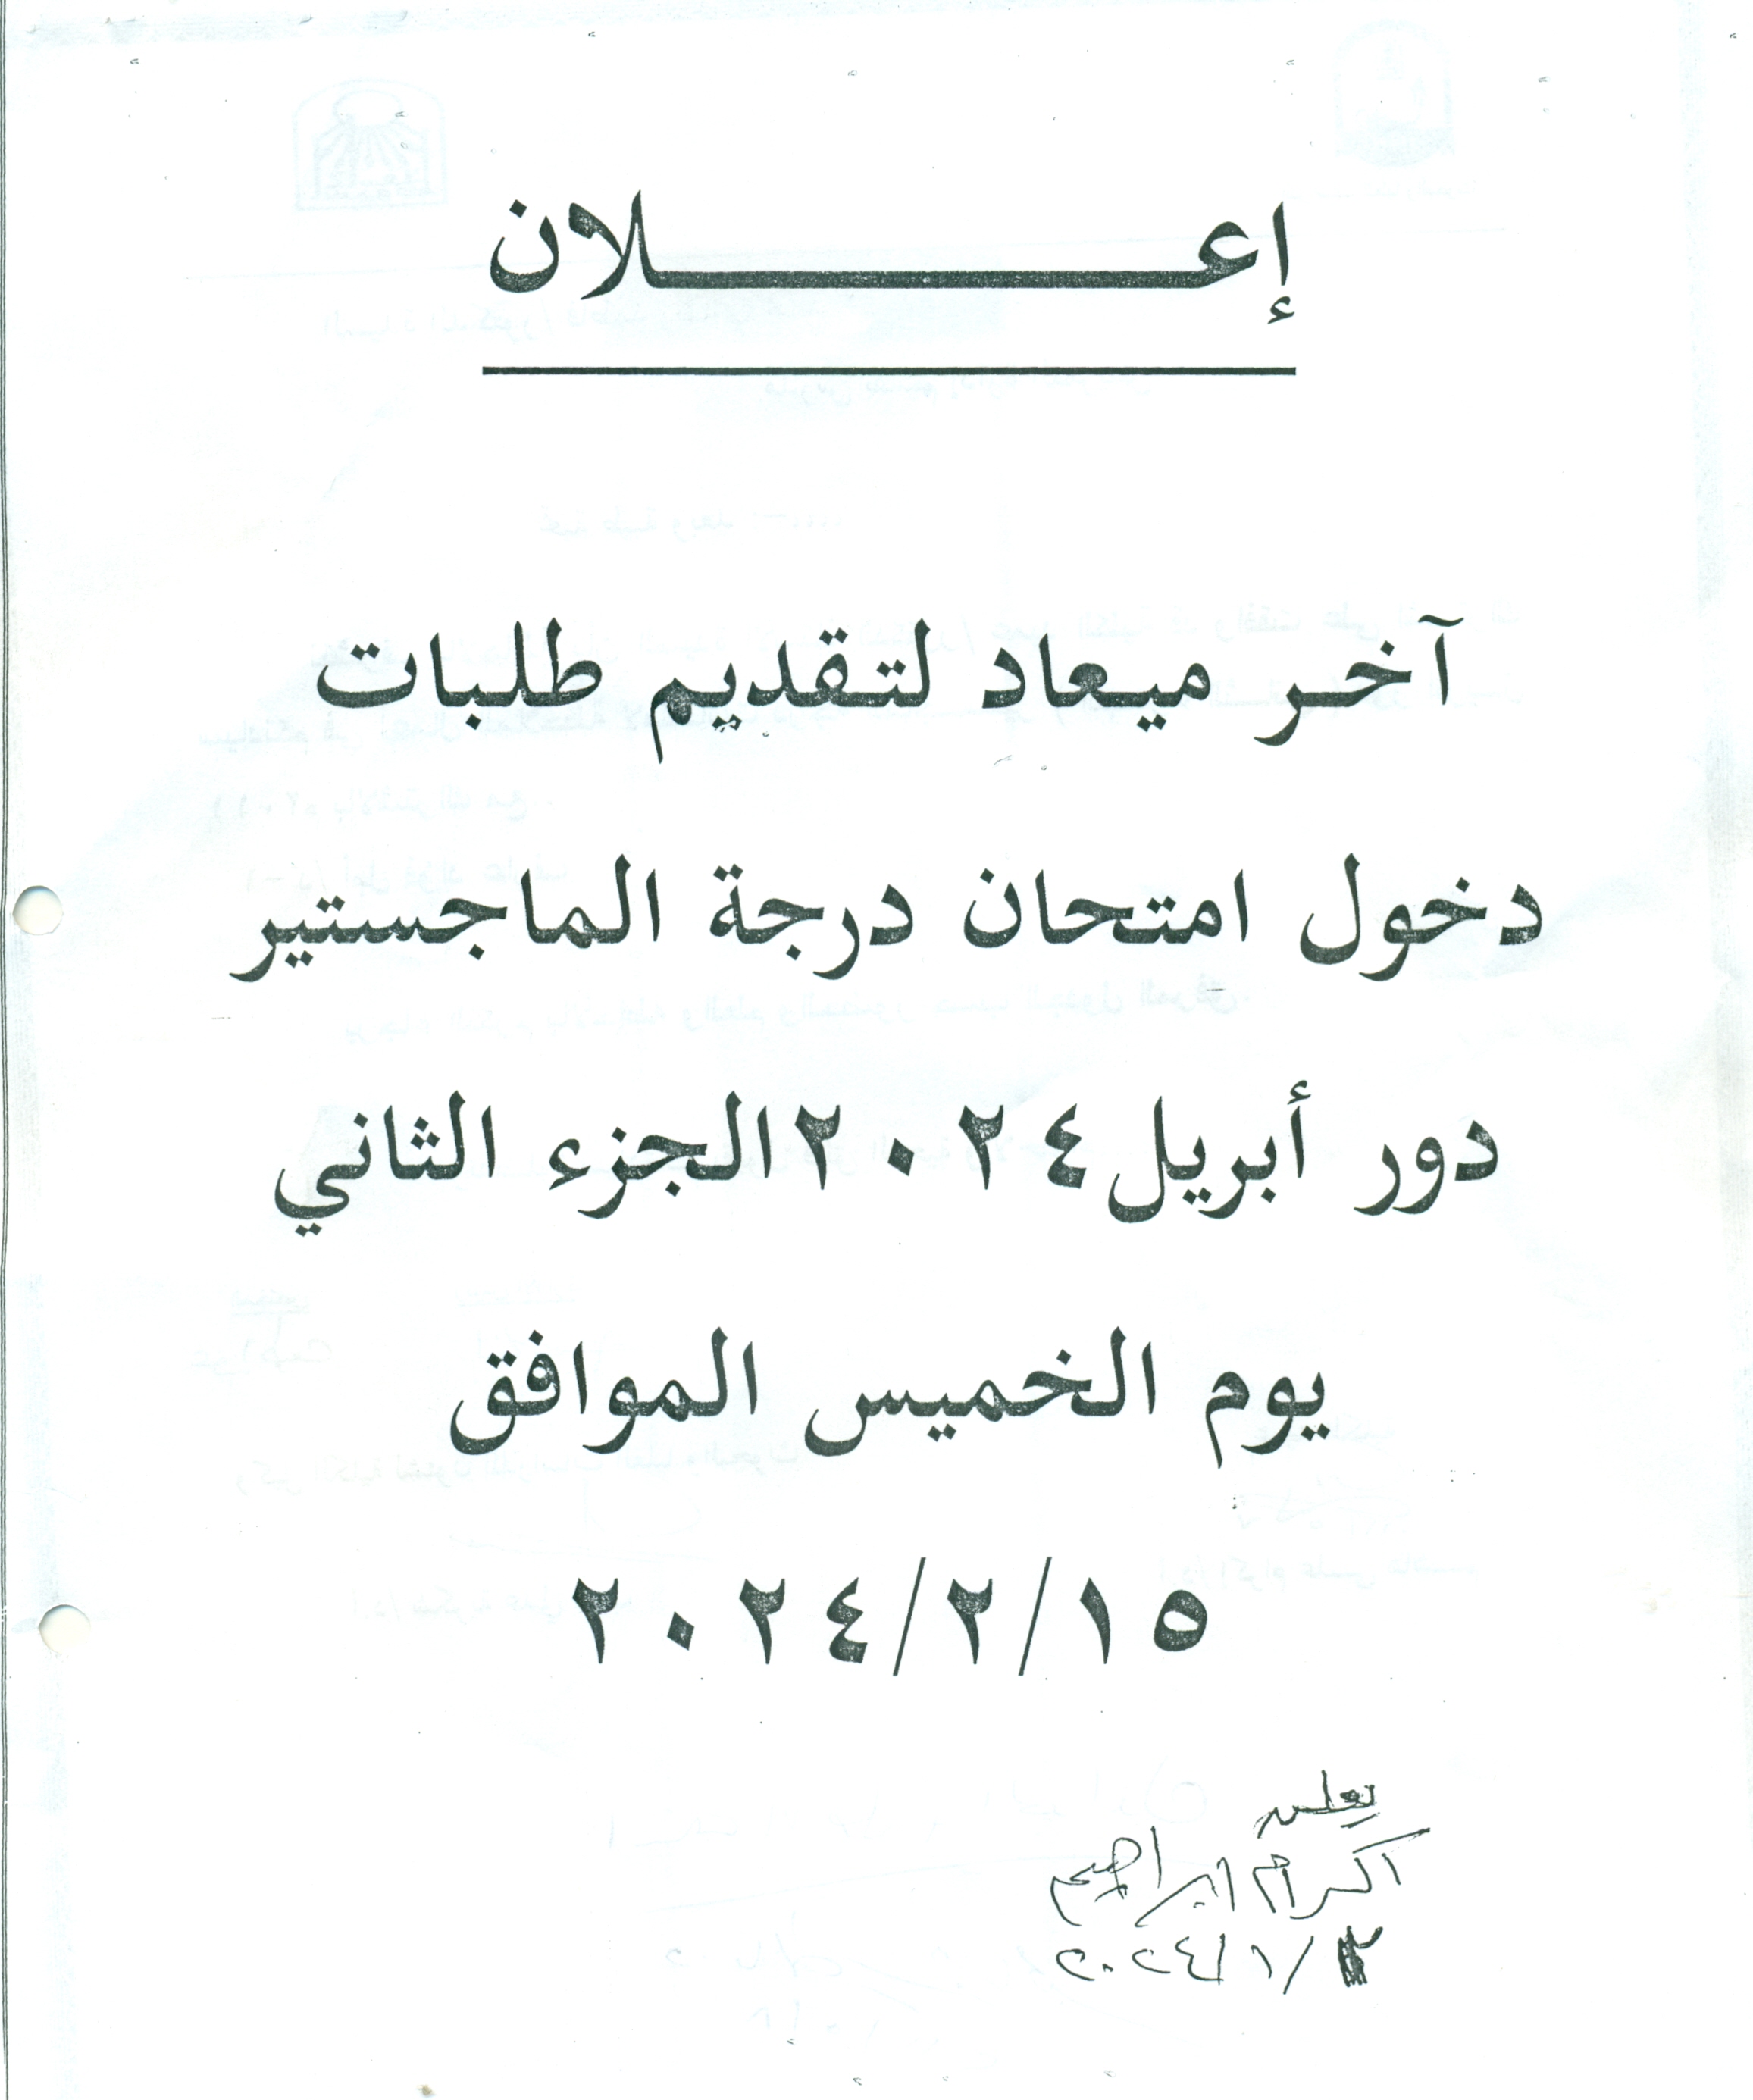 إعلان
آخر ميعاد لتقديم طلبات
دخول امتحان درجة الماجستير
دور أبريل ٢٠٢٤ الجزء الثاني
يوم الخميس الموافق
٢٠٢٤/٢/١٥
اكرام ابراهيم